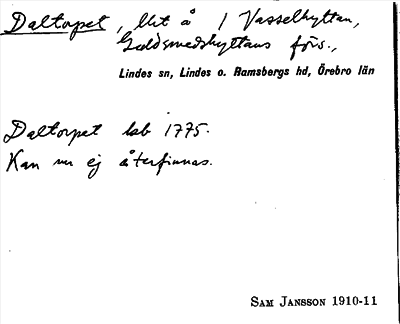 Daltorpet, lht å 1 Vasselhyttan,
Guldsmedshyttans förs.,
Lindes sn, Lindes o. Ramsbergs hd, Örebro län
Daltorpet lab 1775.
Kan nu ej återfinnas.
SAM JANSSON 1910-11